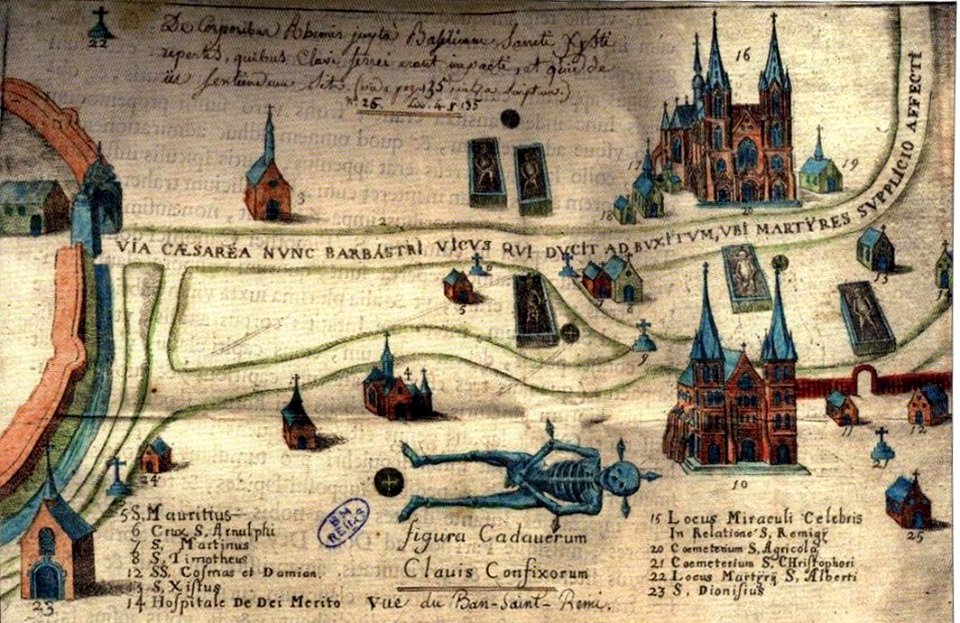 De Corporibus Rhemis juxtà Basilicam Sancti Xysti
repertis, quibus Clavi ferrei erant impacti, et quid de
iis sentiendum sit. (vide pag. 135
N° 26. Lib. 4. p. 135
22
16
17
19
18
3
20
2
VIA CÆSAREA NUNC BARBASTRI VICUS QUI DUCIT AD BUXITUM, UBI MARTŸRES SUPPLICIO AFFECTI
7
6
5
13
9
4
24
10
11
12
21
25
23
5 S. Mauritius
6 Crux S. Arnulphi
7 S. Martinus
8 S. Timotheus
12 SS. Cosmas et Damian.
13 S. Xistus
14 Hospitale De Dei Merito
BM
REIMS
figura Cadauerum
Clauis Confixorum
Vüe du Ban-Saint-Remi.
15 Locus Miraculi Celebris
In Relatione S. Remigy
20 Coemeterium S. Agricola
21 Coemeterium S. CHristophori
22 Locus Martyrÿ S. Alberti
23 S. Dionisius